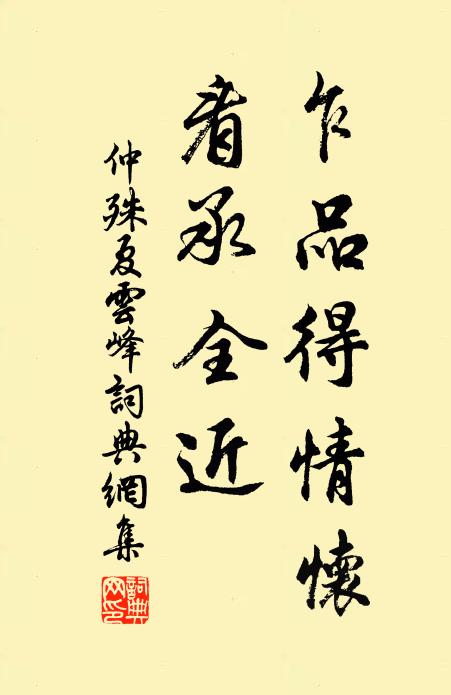 乍品得情懷
看承全近
仲殊夏雲峰詞典網集
詞典網印